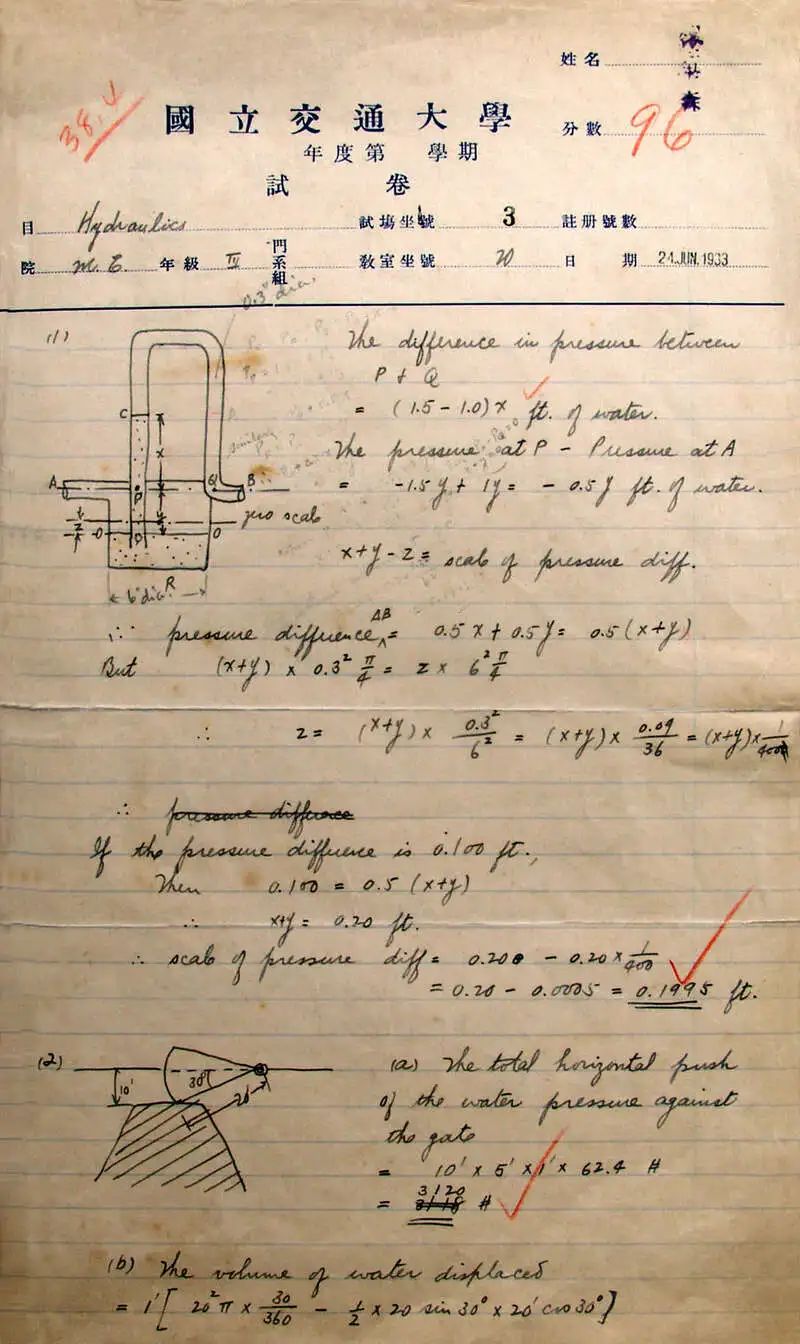 姓名
38.4
國立交通大學
分數 96
年度第 學期
試 卷
目 Hydraulics 試場坐號 3 註册號數
院 M.E. 年級 IV 門系組 教室坐號 20 日期 24.JUN.1933
0.3" dia.
(1)
The difference in pressure between
P + Q
= (1.5 - 1.0)x ft. of water.
C
x
The pressure at P - Pressure at A
A P Q B
= -1.5y + 1y = -0.5y ft. of water.
zero scale
O O
x+y-z = scale of pressure diff.
R
6" dia.
∴ pressure difference AB = 0.5x + 0.5y = 0.5(x+y)
But (x+y) × 0.3² π/4 = z × 6² π/4
∴ z = (x+y) × 0.3²/6² = (x+y) × 0.09/36 = (x+y) × 1/400
∴ pressure difference
If the pressure difference is 0.100 ft.,
Then 0.100 = 0.5 (x+y)
∴ x+y = 0.20 ft.
∴ scale of pressure diff = 0.200 - 0.20 × 1/400
= 0.20 - 0.0005 = 0.1995 ft.
(2)
10' 30° 20'
(a) The total horizontal push
of the water pressure against
the gate
= 10' × 5' × 1' × 62.4 #
= 3120 #
(b) The volume of water displaced
= 1' [ 20² π × 30/360 - 1/2 × 20 sin 30° × 20' cos 30° ]